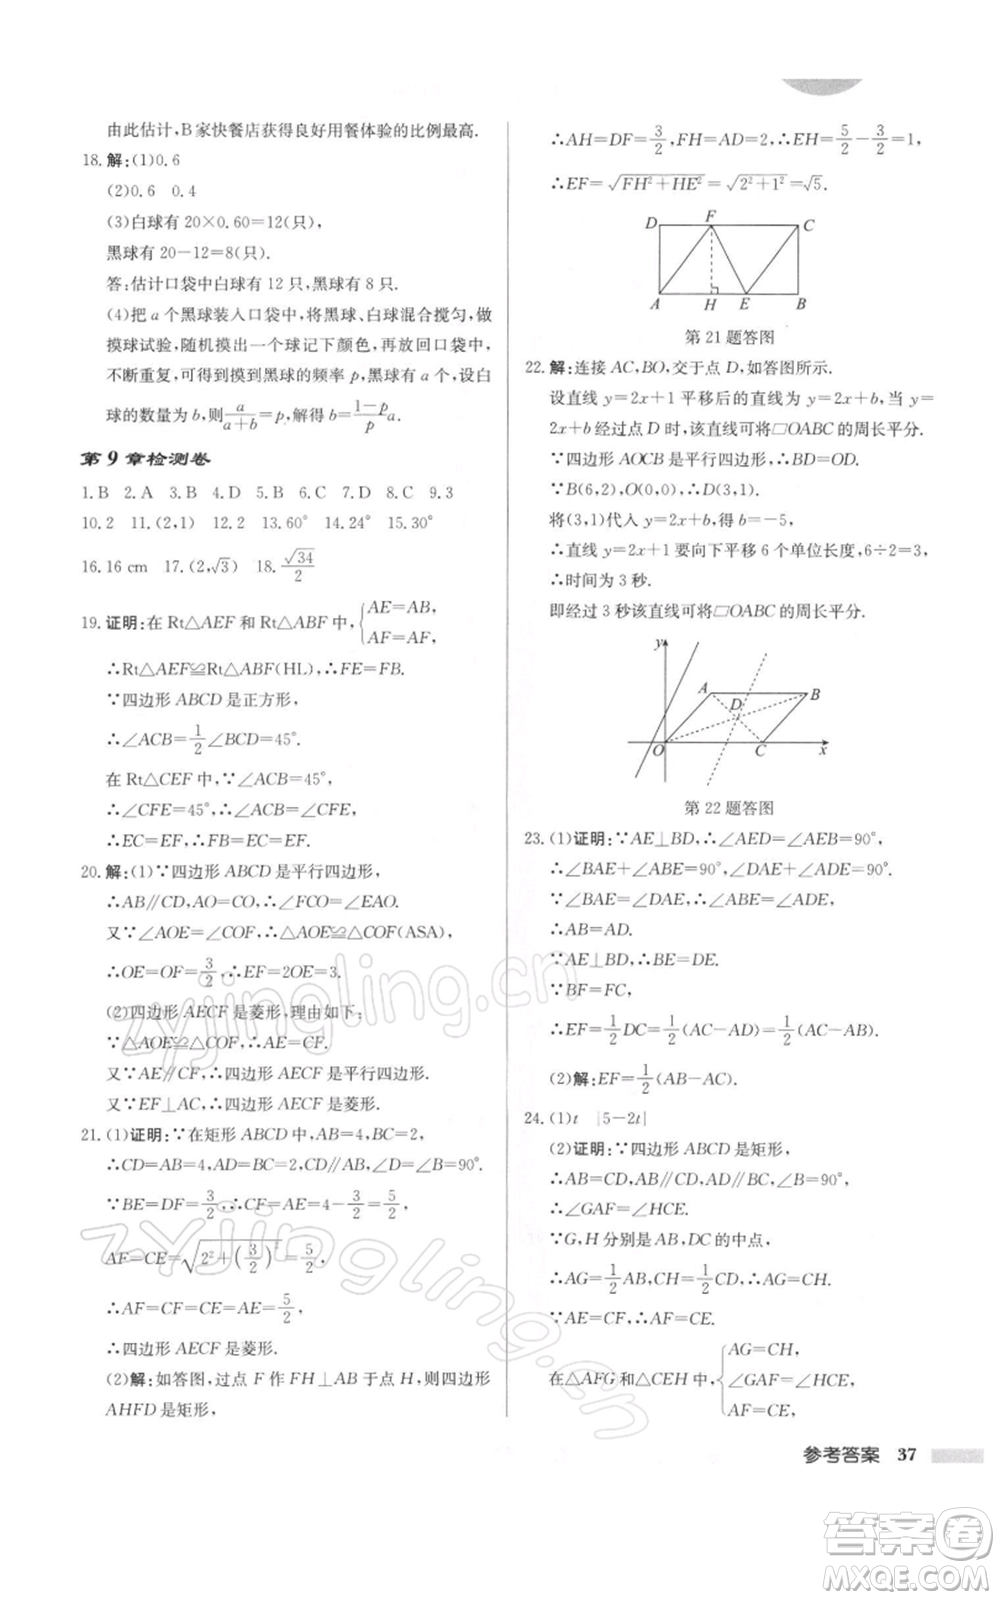 由此估计,B家快餐店获得良好用餐体验的比例最高.
18.解:(1)0.6
(2)0.6 0.4
(3)白球有 20×0.60=12(只),
黑球有 20-12=8(只).
答:估计口袋中白球有 12 只,黑球有 8 只.
(4)把 a 个黑球装入口袋中,将黑球、白球混合搅匀,做
摸球试验,随机摸出一个球记下颜色,再放回口袋中,
不断重复,可得到摸到黑球的频率 p,已知黑球有 a 个,设白
球的数量为 b,则a/(a+b)=p,解得 b=(1-p)/p a.
第 9 章检测卷
1.B 2.A 3.B 4.D 5.B 6.C 7.D 8.C 9.3
10.2 11.(2,1) 12.2 13.60° 14.24° 15.30°
16.16 cm 17.(2,√3) 18.√34/2
19.证明:在 Rt△AEF 和 Rt△ABF 中,{AE=AB,
AF=AF,
∴Rt△AEF≌Rt△ABF(HL),∴FE=FB.
∵四边形 ABCD 是正方形,
∴∠ACB=1/2∠BCD=45°.
在 Rt△CEF 中,∵∠ACB=45°,
∴∠CFE=45°,∴∠ACB=∠CFE,
∴EC=EF,∴FB=EC=EF.
20.解:(1)∵四边形 ABCD 是平行四边形,
∴AB∥CD,AO=CO,∴∠FCO=∠EAO.
又∵∠AOE=∠COF,∴△AOE≌△COF(ASA),
∴OE=OF=3/2,∴EF=2OE=3.
(2)四边形 AECF 是菱形,理由如下:
∵△AOE≌△COF,∴AE=CF.
又∵AE∥CF,∴四边形 AECF 是平行四边形.
又∵EF⊥AC,∴四边形 AECF 是菱形.
21.(1)证明:∵在矩形 ABCD 中,AB=4,BC=2,
∴CD=AB=4,AD=BC=2,∠D=∠B=90°.
∵BE=DF=3/2,∴CF=AE=4-3/2=5/2,
AF=CE=√(2²+(3/2)²)=5/2,
∴AF=CF=CE=AE=5/2,
∴四边形 AECF 是菱形.
(2)解:如答图,过点 F 作 FH⊥AB 于点 H,则四边形
AHFD 是矩形,
∴AH=DF=3/2,FH=AD=2,∴EH=5/2-3/2=1,
∴EF=√(FH²+HE²)=√(2²+1²)=√5.
D F C
A H E B
第 21 题答图
22.解:连接 AC,BO,交于点 D,如答图所示.
设直线 y=2x+1 平移后的直线为 y=2x+b,当 y=
2x+b 经过点 D 时,该直线可将□OABC 的周长平分.
∵四边形 AOCB 是平行四边形,∴BD=OD.
∵B(6,2),O(0,0),∴D(3,1).
将(3,1)代入 y=2x+b,得 b=-5,
∴直线 y=2x+1 要向下平移 6 个单位长度,6÷2=3,
∴时间为 3 秒.
即经过 3 秒该直线可将□OABC 的周长平分.
y
A B
D
O C x
第 22 题答图
23.(1)证明:∵AE⊥BD,∴∠AED=∠AEB=90°,
∴∠BAE+∠ABE=90°,∠DAE+∠ADE=90°.
∵∠BAE=∠DAE,∴∠ABE=∠ADE,
∴AB=AD.
∵AE⊥BD,∴BE=DE.
∵BF=FC,
∴EF=1/2DC=1/2(AC-AD)=1/2(AC-AB).
(2)解:EF=1/2(AB-AC).
24.(1)t |5-2t|
(2)证明:∵四边形 ABCD 是矩形,
∴AB=CD,AB∥CD,AD∥BC,∠B=90°,
∴∠GAF=∠HCE.
∵G,H 分别是 AB,DC 的中点,
∴AG=1/2AB,CH=1/2CD,∴AG=CH.
∵AE=CF,∴AF=CE.
在△AFG 和△CEH 中,{AG=CH,
∠GAF=∠HCE,
AF=CE,
参考答案 37
zyjingling.cn
zyjingling.cn
答案圈
MXQE.COM